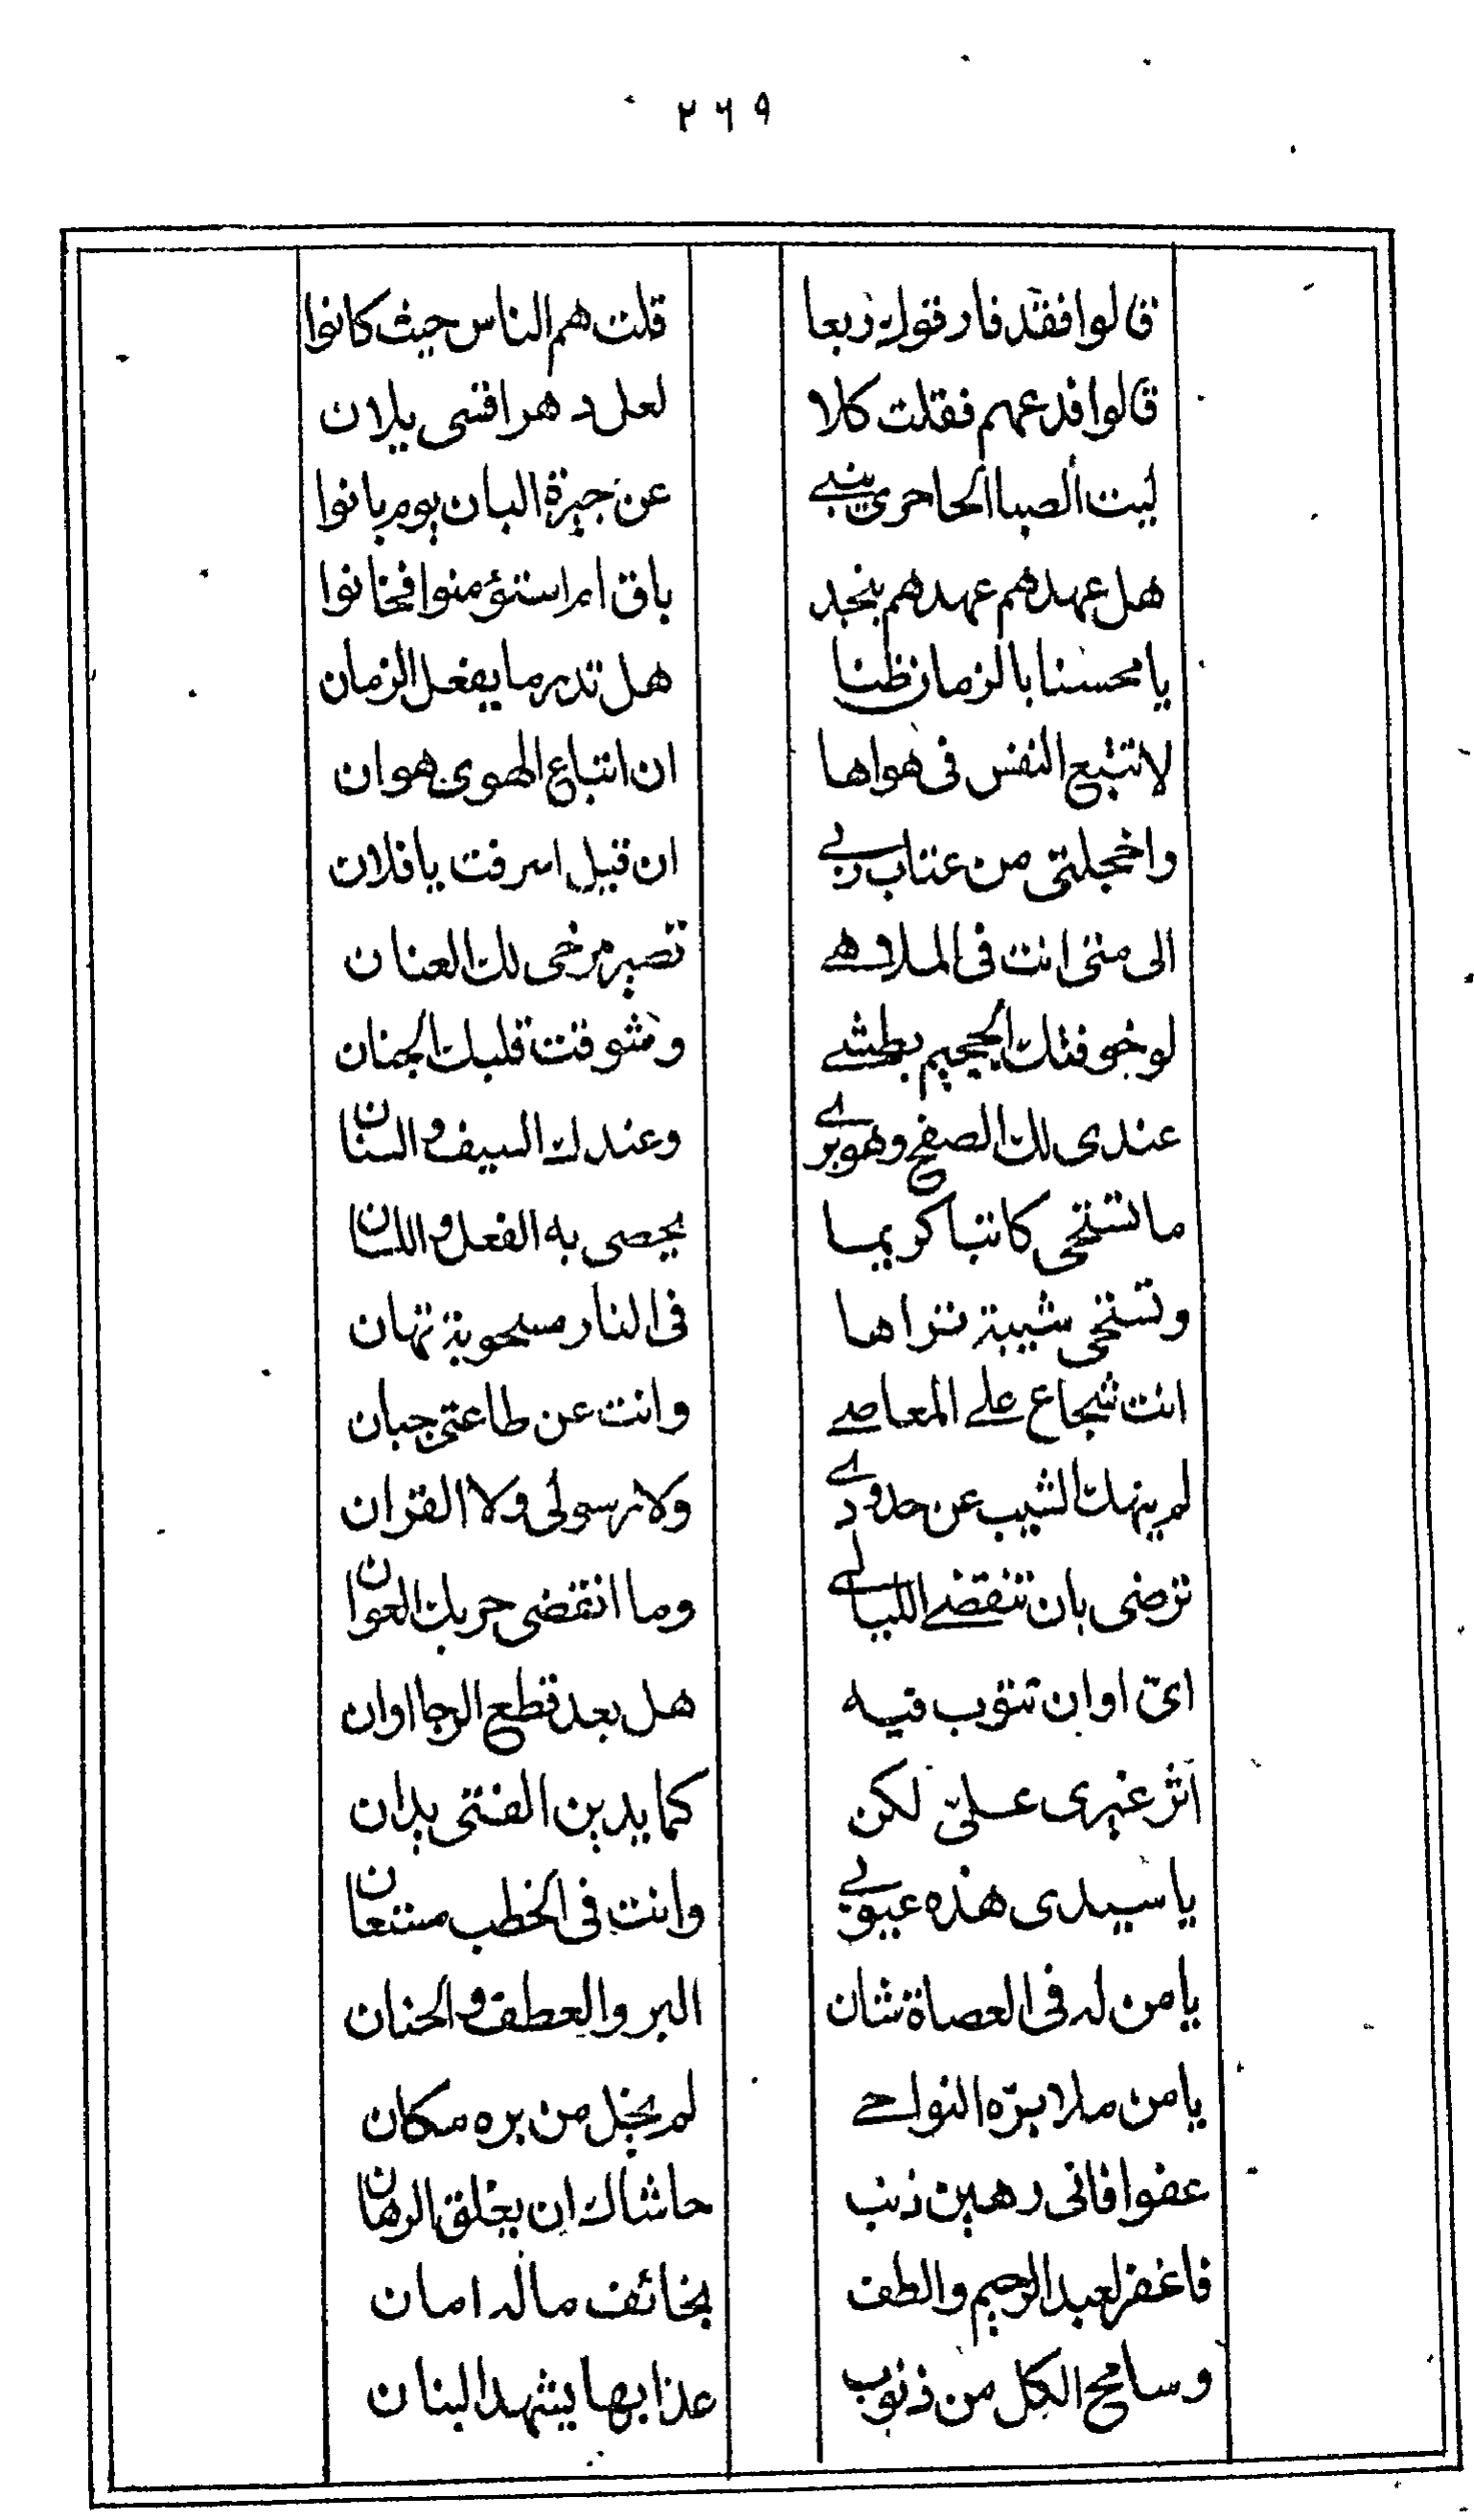 ٢٦٩
قالوا فقد فارقوك ربعا قلت هم الناس حيث كانوا
قالوا فدعهم فقلت كلا لعل دهرا قسى يلان
ليت الصبا الحاجرى ينبى عن جيرة البان يوم بانوا
هل عهدهم عهدهم بنجد باق ام استؤمنوا فخانوا
يا محسنا بالزمان ظنا هل تدر ما يفعل الزمان
لا تتبع النفس فى هواها ان اتباع الهوى هوان
واخجلتى من عتاب ربى ان قيل اسرفت يا فلان
الى متى انت فى الملاهى تصير مرخى لك العنان
لو خوفتك الجحيم بطشى وشوقت قلبك الجنان
عندى لك الصفح وهو برى وعندك السيف والسنان
ما تستحى كاتبا كريما يحصى به الفعل واللسان
وتستحى شيبة تراها فى النار مسحوبة تهان
انت شجاع على المعاصى وانت عن طاعتى جبان
لم ينهك الشيب عن حدودى ولا رسولى ولا القران
ترضى بان تنقضى الليالى وما انقضى حربك العوان
اىّ اوان تتوب فيه هل بعد قطع الرجا اوان
اثر غيرى علىّ لكن كما يدين الفتى يدان
يا سيدى هذه عيوبى وانت فى الخطب مستعان
يا من له فى العصاة شان البر والعطف والحنان
يا من ملا برّه النواحى لم يخل من بره مكان
عفوا فانى رهين ذنب حاشاك ان يغلق الرهان
فاغفر لعبد الرحيم والطف بخائف ماله امان
وسامح الكل من ذنوب عذابها يشهد البنان